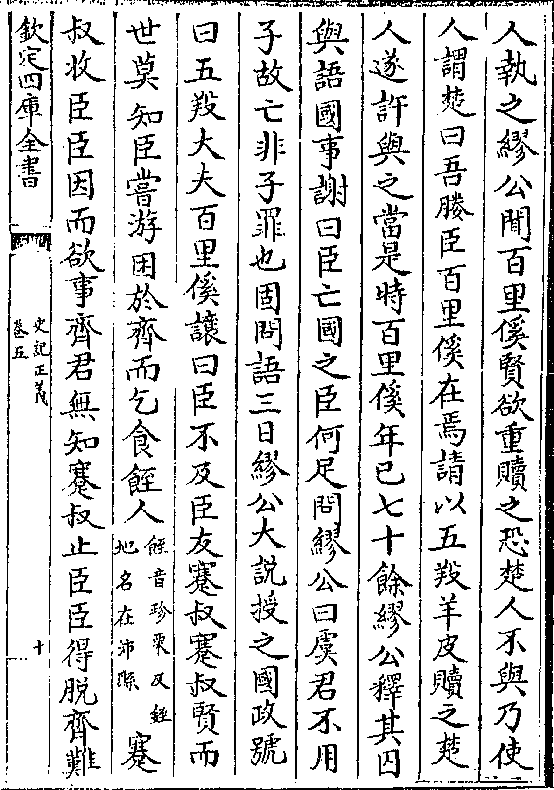 人執之繆公聞百里傒賢欲重贖之恐楚人不與乃使
人謂楚曰吾媵臣百里傒在焉請以五羖羊皮贖之楚
人遂許與之當是時百里傒年已七十餘繆公釋其囚
與語國事謝曰臣亡國之臣何足問繆公曰虞君不用
子故亡非子罪也固問語三日繆公大說授之國政號
曰五羖大夫百里傒讓曰臣不及臣友蹇叔蹇叔賢而
世莫知臣嘗游困於齊而乞食銍人銍音珍栗反銍地名在沛縣蹇
叔收臣臣因而欲事齊君無知蹇叔止臣臣得脫齊難
欽定四庫全書
史記正義
卷五
十